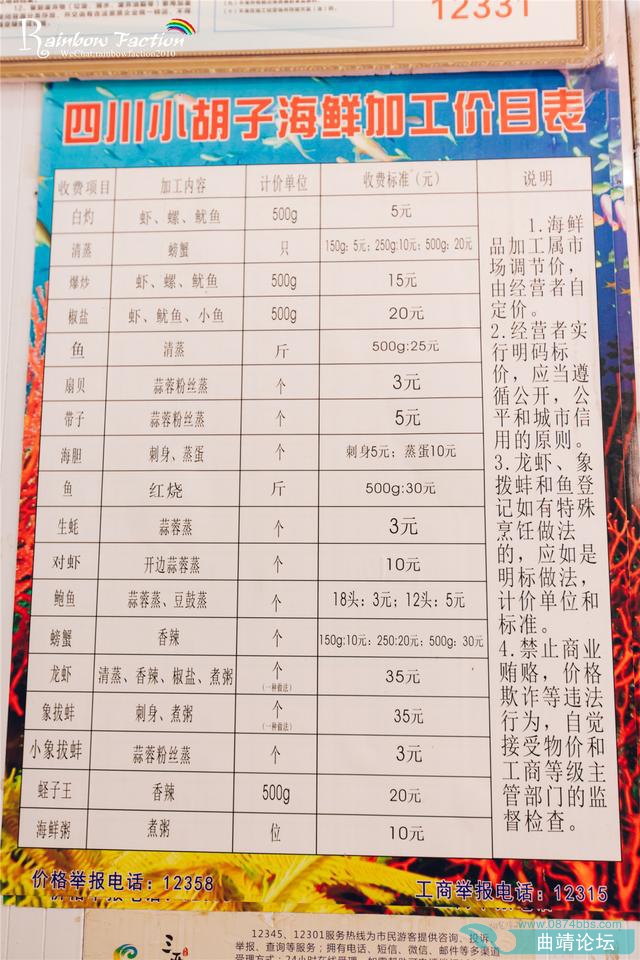 12331
Rainbow Faction
WeChat:rainbowfaction2010
四川小胡子海鲜加工价目表
收费项目 加工内容 计价单位 收费标准（元） 说明
白灼 虾、螺、鱿鱼 500g 5元
清蒸 螃蟹 只 150g：5元；250g:10元；500g：20元
爆炒 虾、螺、鱿鱼 500g 15元
椒盐 虾、鱿鱼、小鱼 500g 20元
鱼 清蒸 斤 500g:25元
扇贝 蒜蓉粉丝蒸 个 3元
带子 蒜蓉粉丝蒸 个 5元
海胆 刺身、蒸蛋 个 刺身5元；蒸蛋10元
鱼 红烧 斤 500g:30元
生蚝 蒜蓉蒸 个 3元
对虾 开边蒜蓉蒸 个 10元
鲍鱼 蒜蓉蒸、豆鼓蒸 个 18头：3元；12头：5元
螃蟹 香辣 个 150g:10元：250:20元；500g：30元
龙虾 清蒸、香辣、椒盐、煮粥 个 （一种做法） 35元
象拔蚌 刺身、煮粥 个 （一种做法） 35元
小象拔蚌 蒜蓉粉丝蒸 个 3元
蛏子王 香辣 500g 20元
海鲜粥 煮粥 位 10元
1.海鲜
品加工属市
场调节价，
由经营者自
定价。
2.经营者实
行明码标
价，应当遵
循公开，公
平和城市信
用的原则。
3.龙虾、象
拨蚌和鱼登
记如有特殊
烹饪做法
的，应如是
明标做法，
计价单位和
标准。
4.禁止商业
贿赂，价格
欺诈等违法
行为，自觉
接受物价和
工商等级主
管部门的监
督检查。
价格举报电话：12358
工商举报电话：12315
12345、12301服务热线为市民游客提供咨询、投诉、
举报、查询等服务；拥有电话、短信、微信、邮件等多渠道
www.0874bbs.com
曲靖论坛